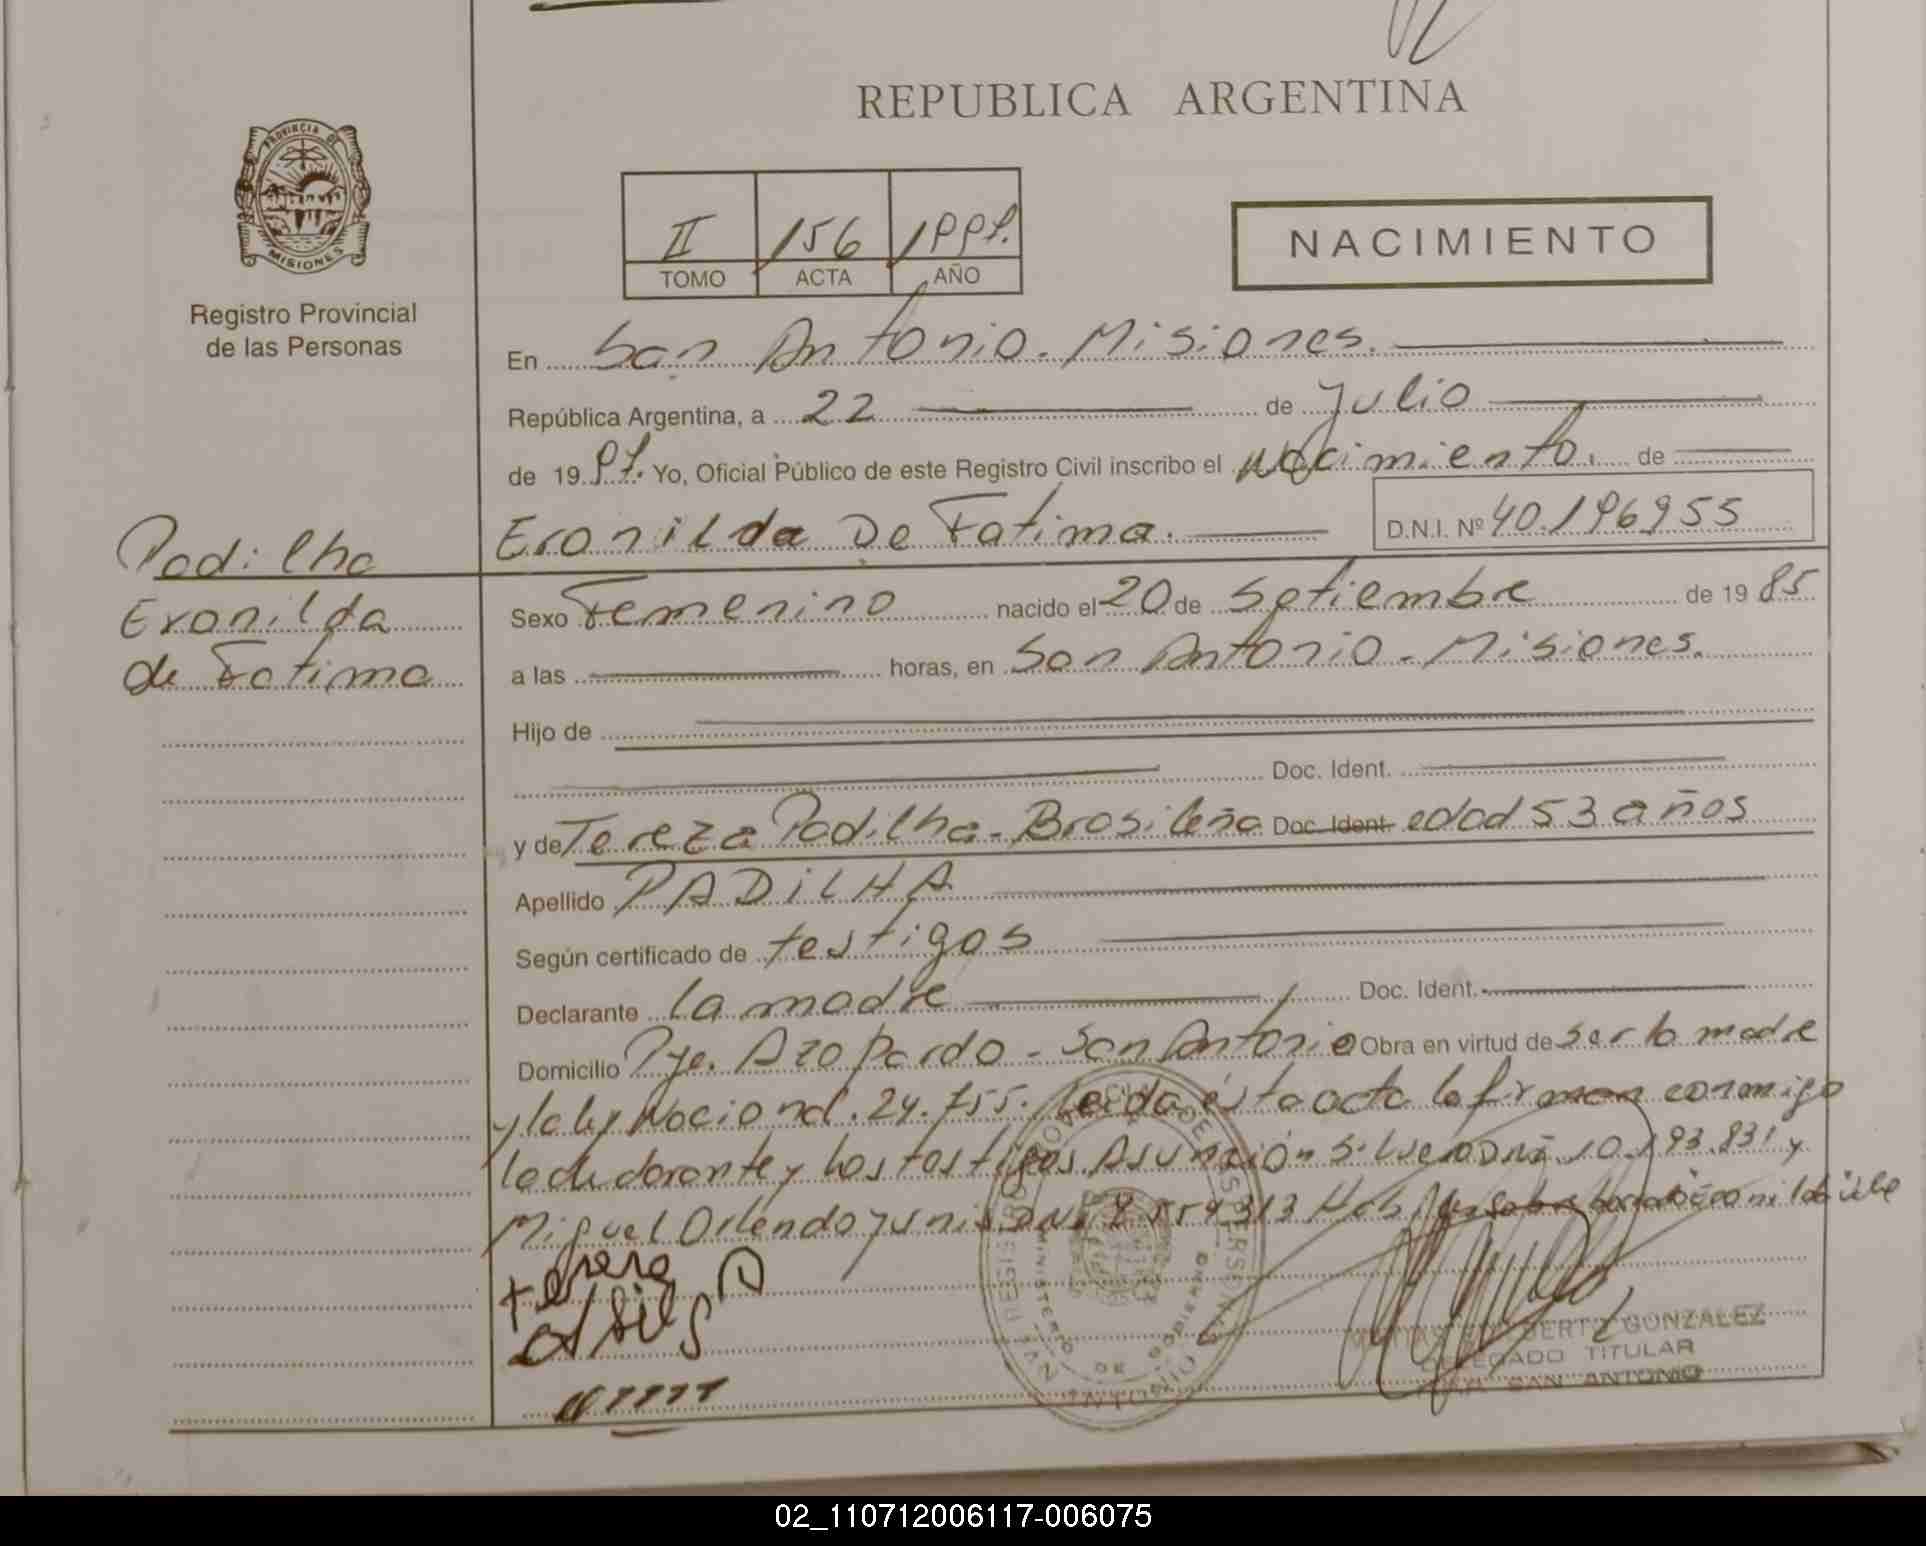 REPUBLICA ARGENTINA
PROVINCIA DE
MISIONES
Registro Provincial
de las Personas
II 156 1997.
TOMO ACTA AÑO
NACIMIENTO
En San Antonio. Misiones.
República Argentina, a 22 de Julio
de 19 97. Yo, Oficial Público de este Registro Civil inscribo el Nacimiento. de
Eronilda De Fatima. D.N.I. Nº 40.196955
Padilha
Eronilda
de Fatima
Sexo Femenino nacido el 20 de Setiembre de 19 85
a las horas, en San Antonio - Misiones.
Hijo de
Doc. Ident.
y de Tereza Padilha - Brasileña Doc. Ident. edad 53 años
Apellido PADILHA
Según certificado de testigos
Declarante La madre Doc. Ident.
Domicilio Pje. Azopardo - San Antonio Obra en virtud de ser la madre
y la ley Nacional. 24.755. Leida ésta acta la firman conmigo
la declarante y los testigos Asunción S. DNI 10.193.831 y
Miguel Orlendo
REGISTRO PROVINCIAL DE LAS PERSONAS
MINISTERIO DE GOBIERNO
SAN ANTONIO
GONZALEZ
DELEGADO TITULAR
SAN ANTONIO
02_110712006117-006075